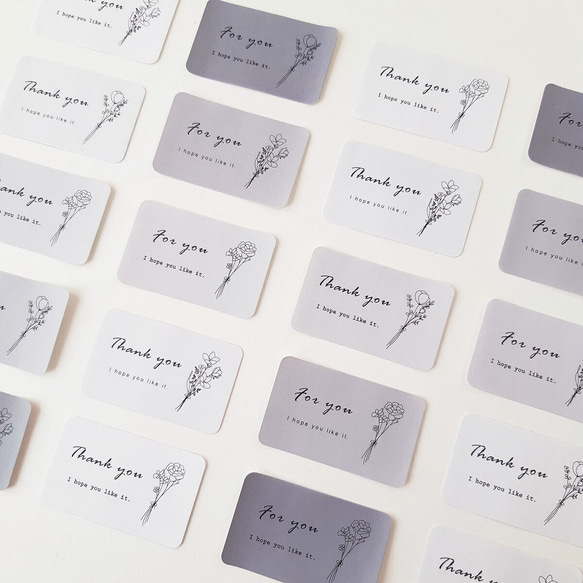 Thank you
I hope you like it.
For you
I hope you like it.
Thank you
I hope you like it.
Thank you
I hope you like it
For you
I hope you like it
Thank you
I hope you like it
For you
I hope
you like it.
For you
I hope you like it.
Thank you
I hope you like it.
For you
I hope you like it
Thank you
I hope you like it
For you
I hope you like it
For you
I hope you like it.
Thank you
I hope you like it.
Thank you
I hope you like it.
For you
I hope you like it.
Thank you